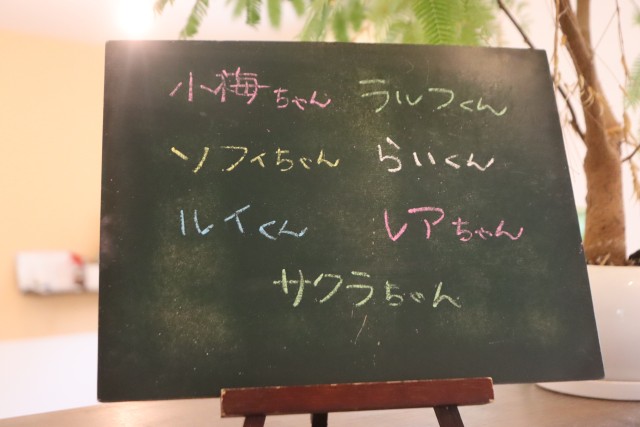 小梅ちゃん ラルフくん
ソフィちゃん らいくん
ルイくん レアちゃん
サクラちゃん